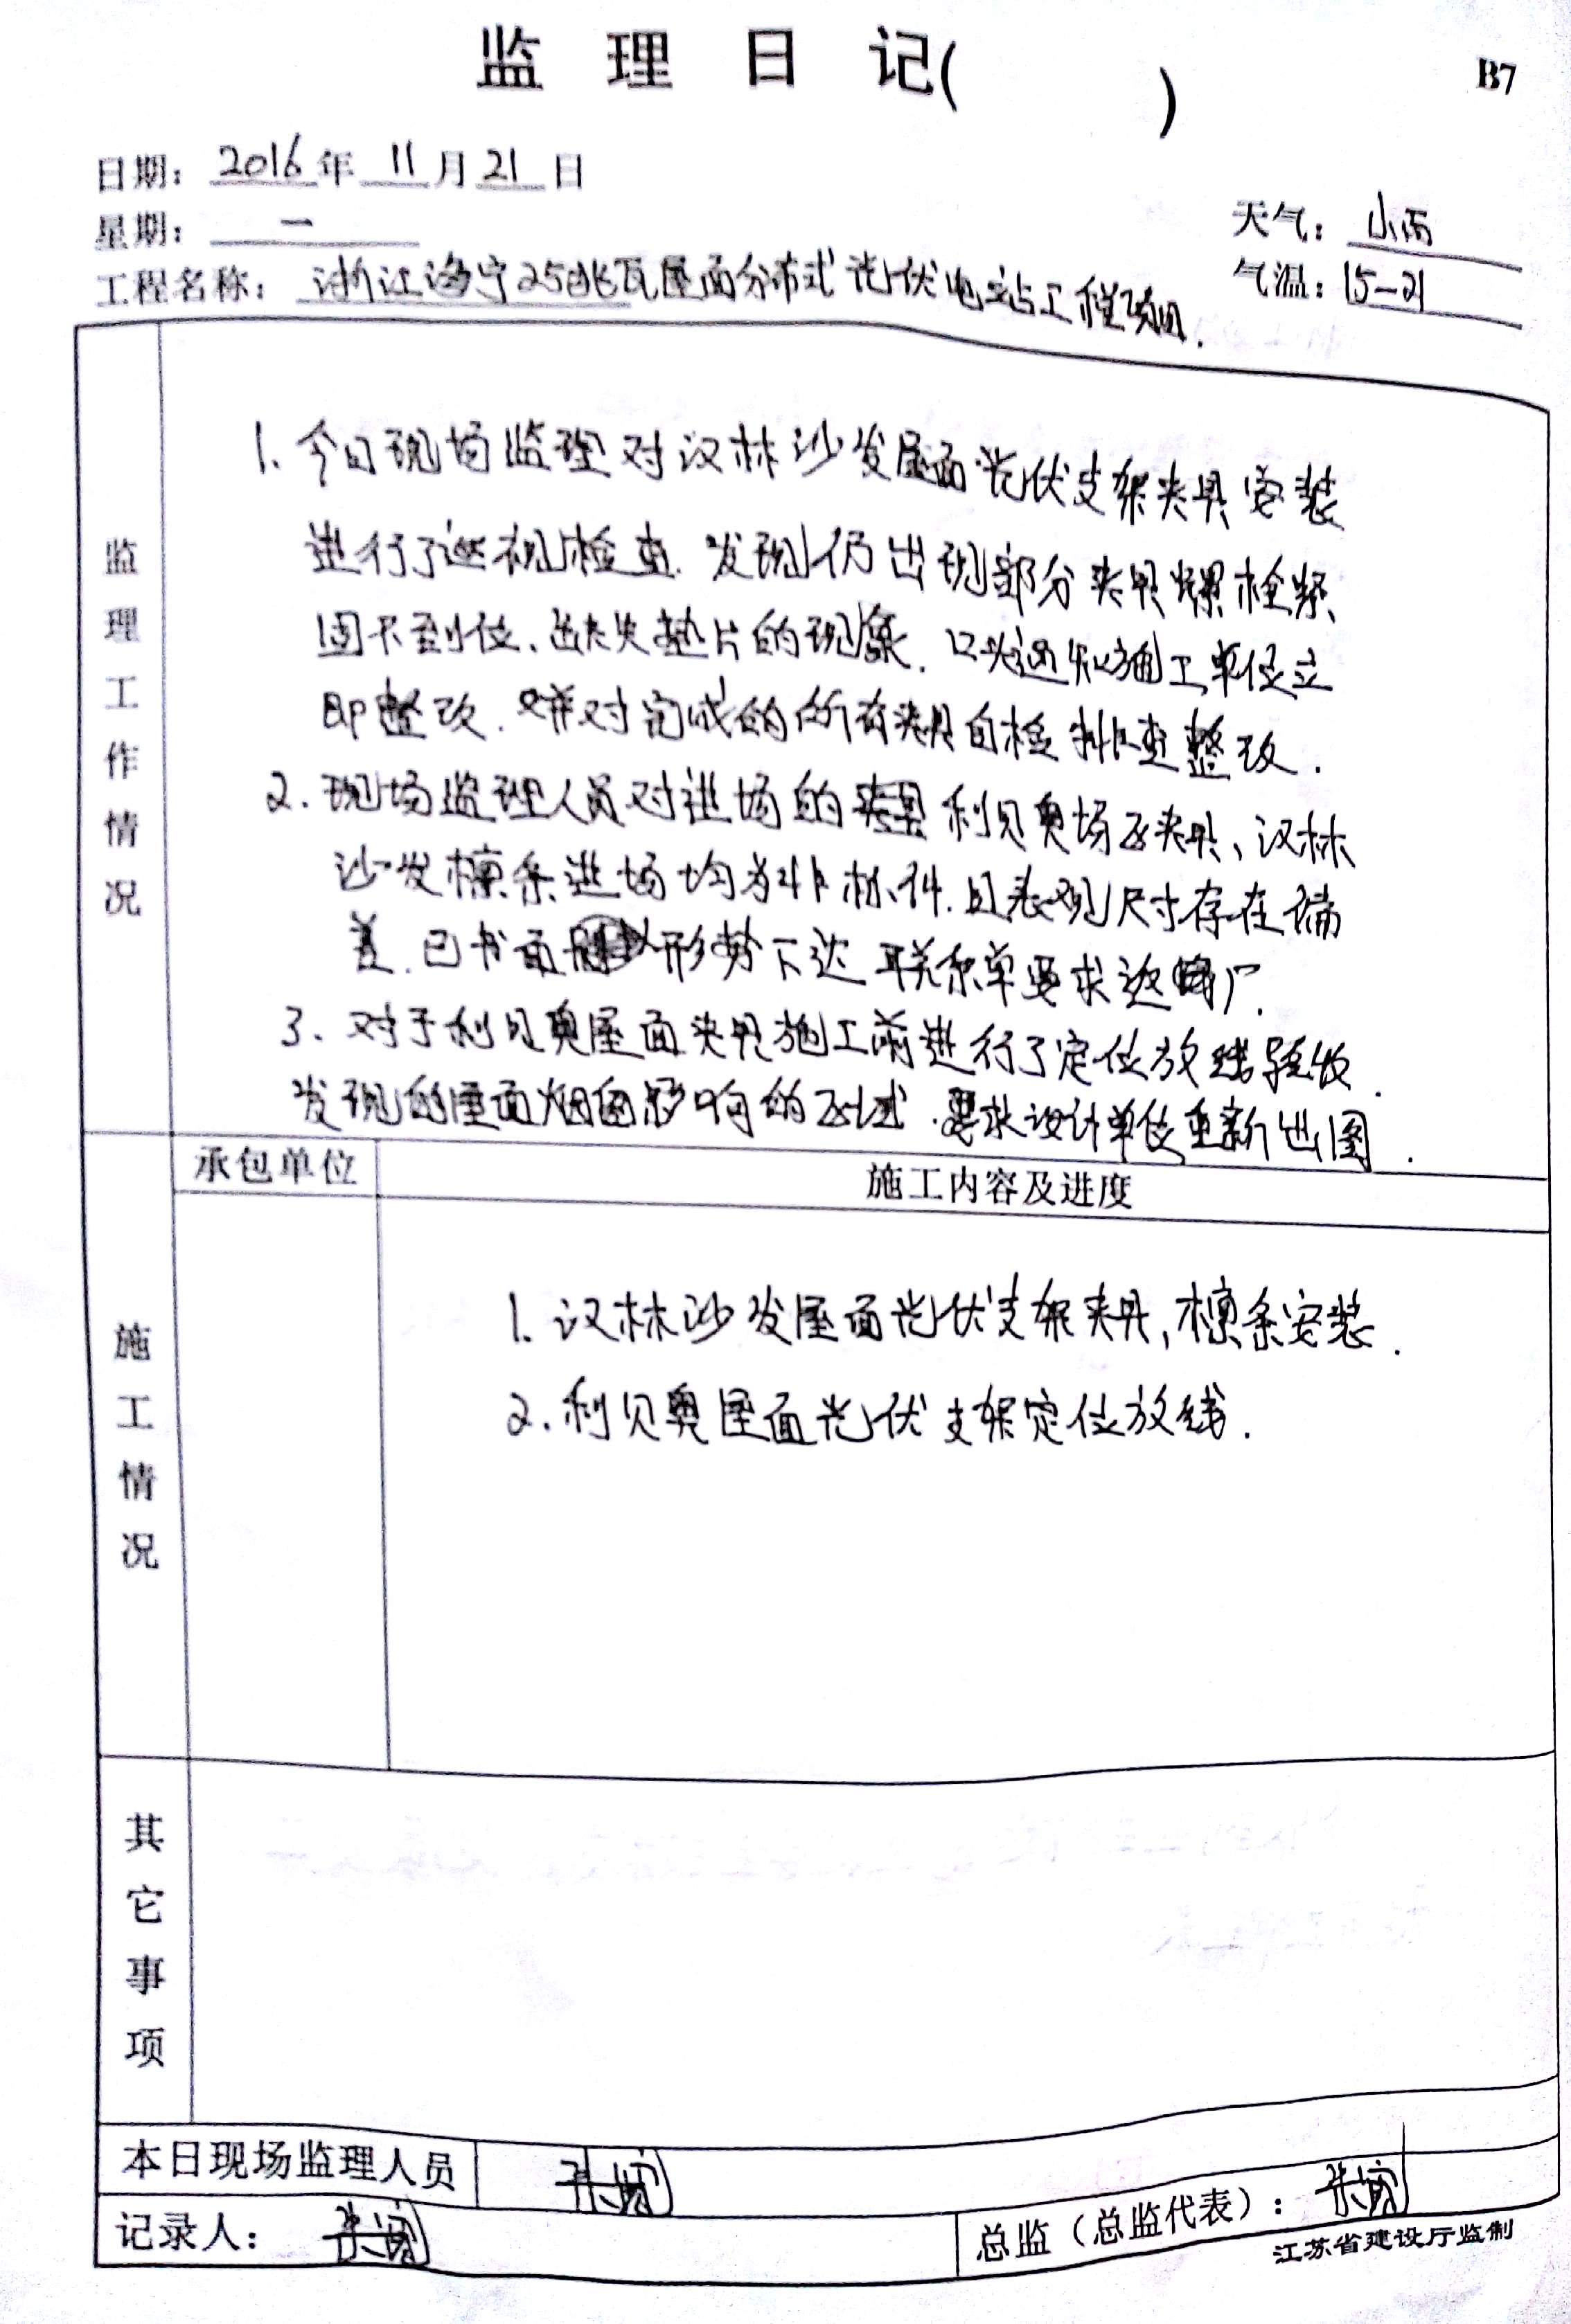 监 理 日 记( )
B7
日期: 2016 年 11 月 21 日
星期: 一
天气: 小雨
工程名称: 浙江海宁25兆瓦屋面分布式光伏电站工程项目.
气温: 15-21
监理工作情况
1. 今日现场监理对汉林沙发屋面光伏支架夹具安装
进行了巡视检查. 发现仍出现部分夹具螺栓紧
固不到位、缺失垫片的现象. 口头通知施工单位立
即整改. 并对完成的所有夹具自检排查整改.
2. 现场监理人员对进场的 利贝奥场区夹具、汉林
沙发檩条进场均为非标件. 且表观尺寸存在偏
差. 已书面 形势下达联系单要求返厂.
3. 对于利贝奥屋面夹具施工前进行了定位放线验收.
发现的屋面烟囱影响的区域. 要求设计单位重新出图.
承包单位
施工内容及进度
施工情况
1. 汉林沙发屋面光伏支架夹具, 檩条安装.
2. 利贝奥屋面光伏支架定位放线.
其它事项
本日现场监理人员 张
记录人: 张
总监(总监代表): 张
江苏省建设厅监制